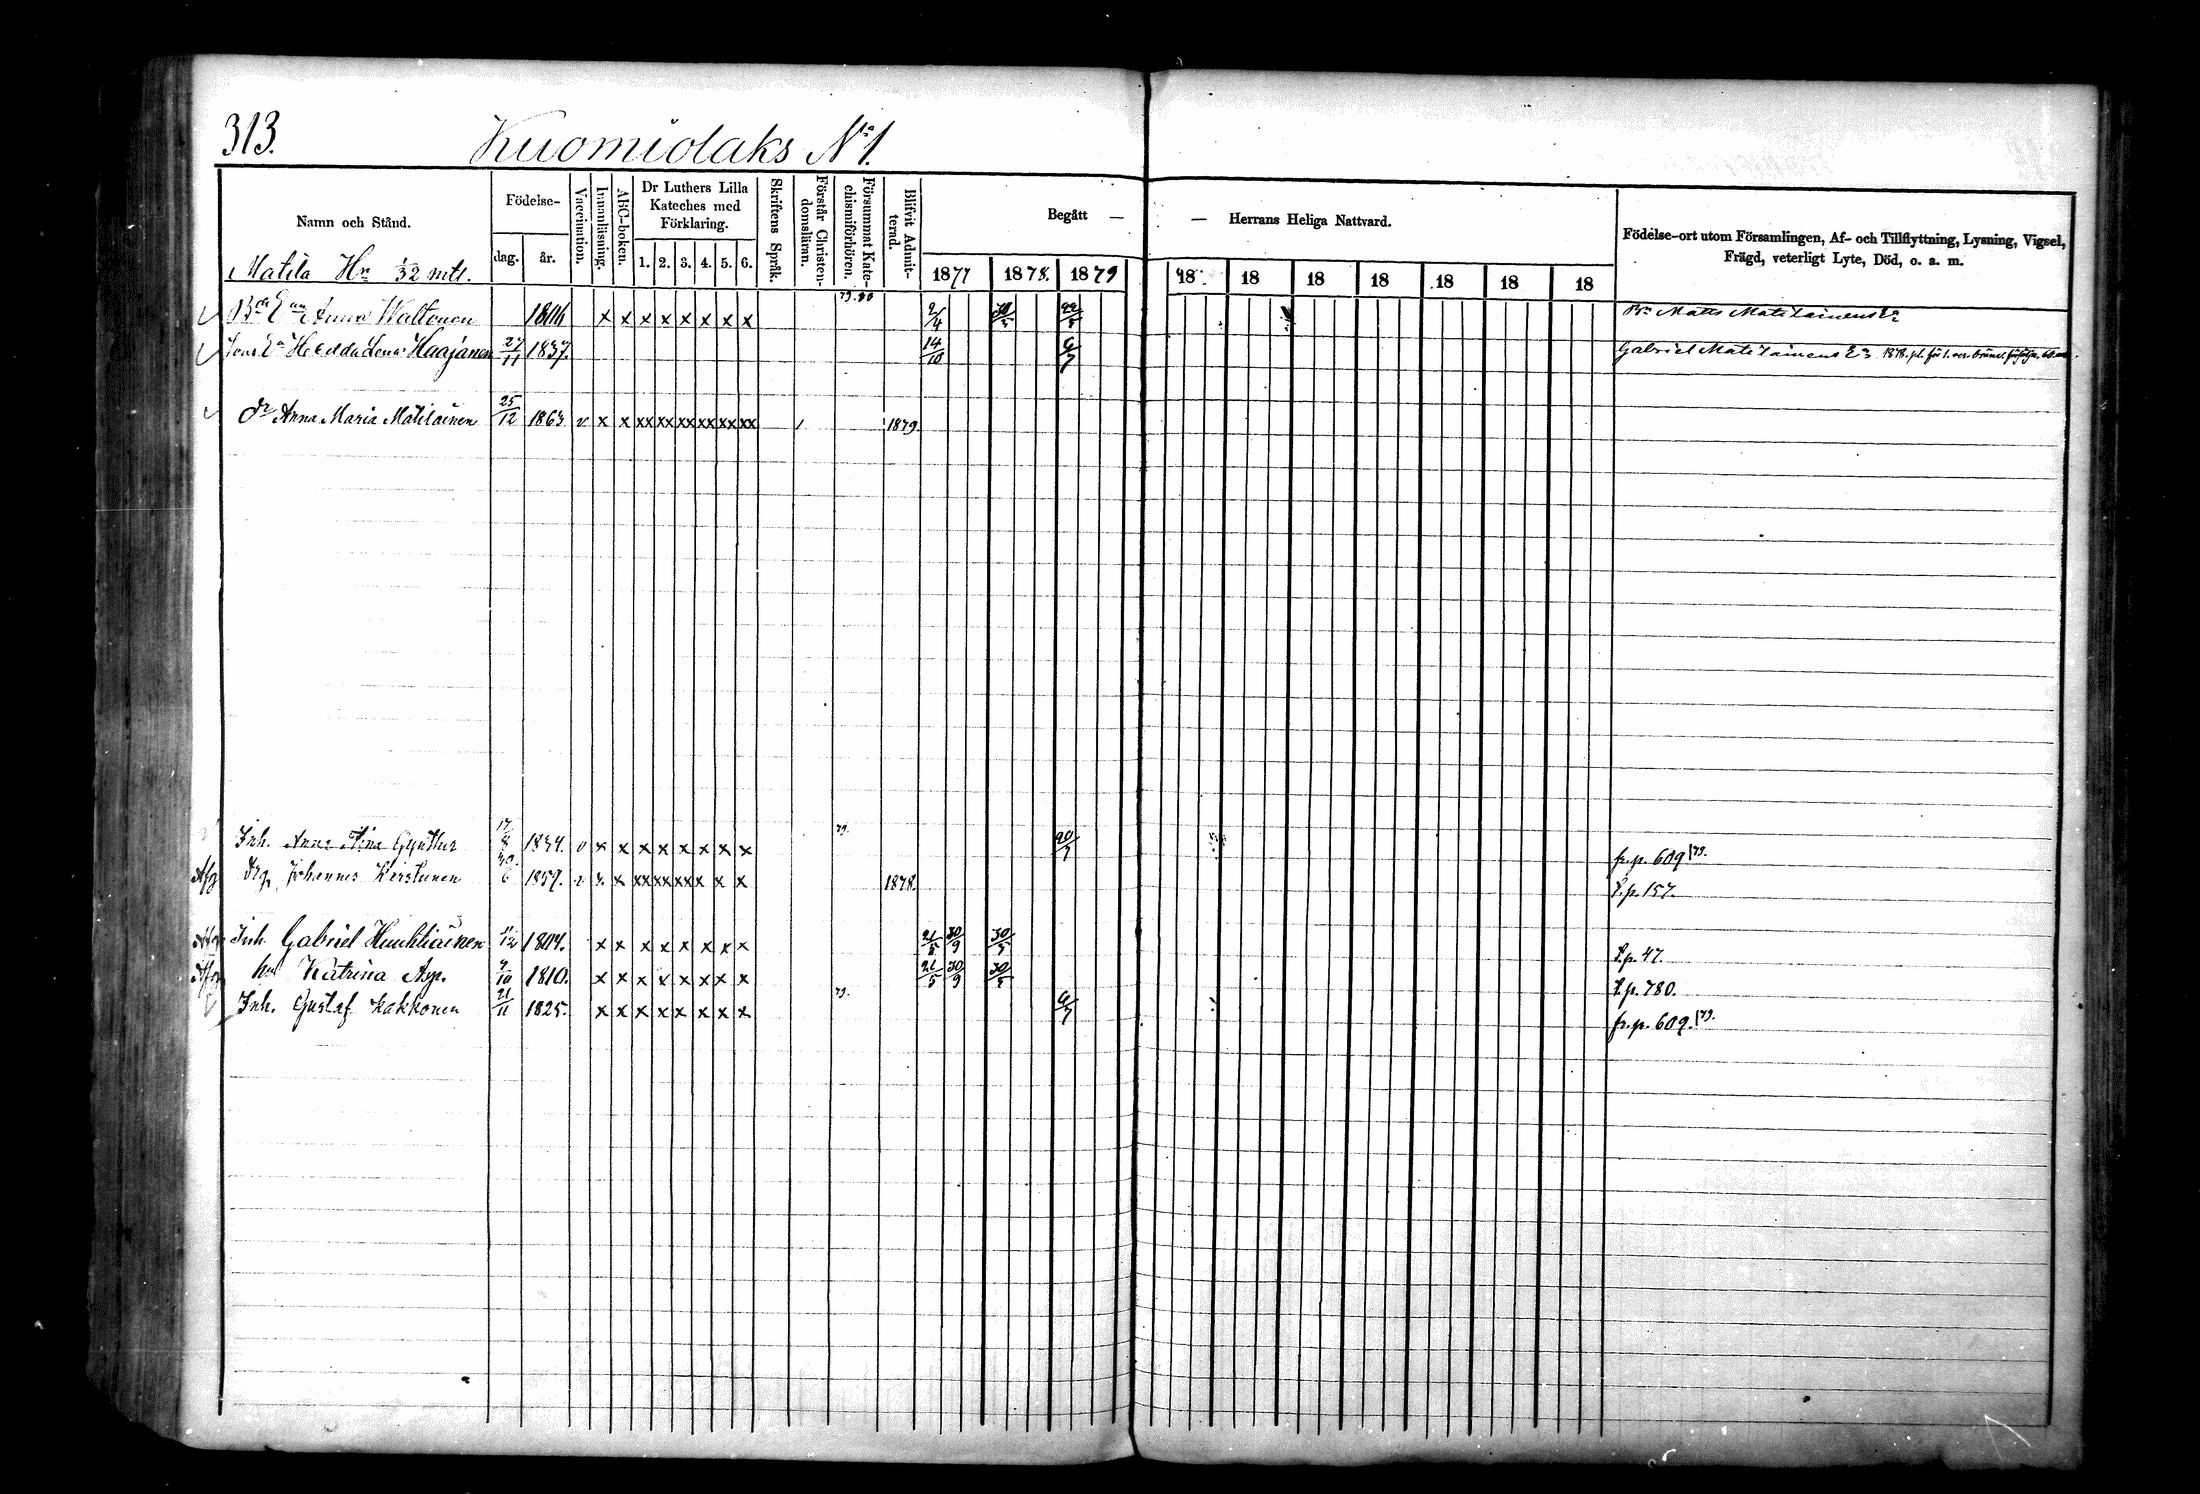 313.
Kuomiolaks No 1.
Namn och Stånd.
Födelse-
dag.
år.
Vaccination.
Innanläsning.
ABC-boken.
Dr Luthers Lilla Kateches med Förklaring.
1. 2. 3. 4. 5. 6.
Skriftens Språk.
Förstår Christendomslärann.
Försummat Katechismiförhören.
Blifvit Admitterad.
Begått — — Herrans Heliga Nattvard.
1877 1878. 1879 18 18 18 18 18 18 18
Födelse-ort utom Församlingen, Af- och Tillflyttning, Lysning, Vigsel,
Frägd, veterligt Lyte, Död, o. a. m.
Matila Hn 1/32 mtl.
Anna Waltonen x x x x x x x x 79. 80 2/4 30/5 Matts Matilainens
Hedda Lena Haajanen 27/11 1837. 14/10 6/7 Gabriel Matilainens 1878.
dr Anna Maria Matilainen 25/12 1863 v x x xx xx xx xx xx xx 1879.
Inh. Anna Stina Gynther 17/8 1834. v x x x x x x x x 79. 20/7 fr. p. 609/79.
Afg Drg. Johannes Kerstinen 30/6 1859. v x x xx xx xx x x x 1878. L. p. 157.
Afg Inh. Gabriel Huuhtiainen x x x x x x x x 21/5 30/9 30/5 L. p. 47.
Afg hu Katrina Asp. 9/10 1810. x x x x x x x x 21/5 30/9 30/5 L. p. 780.
Inh. Gustaf Kakkonen 21/11 1825. x x x x x x x x 79. 6/7 fr. p. 609./79.